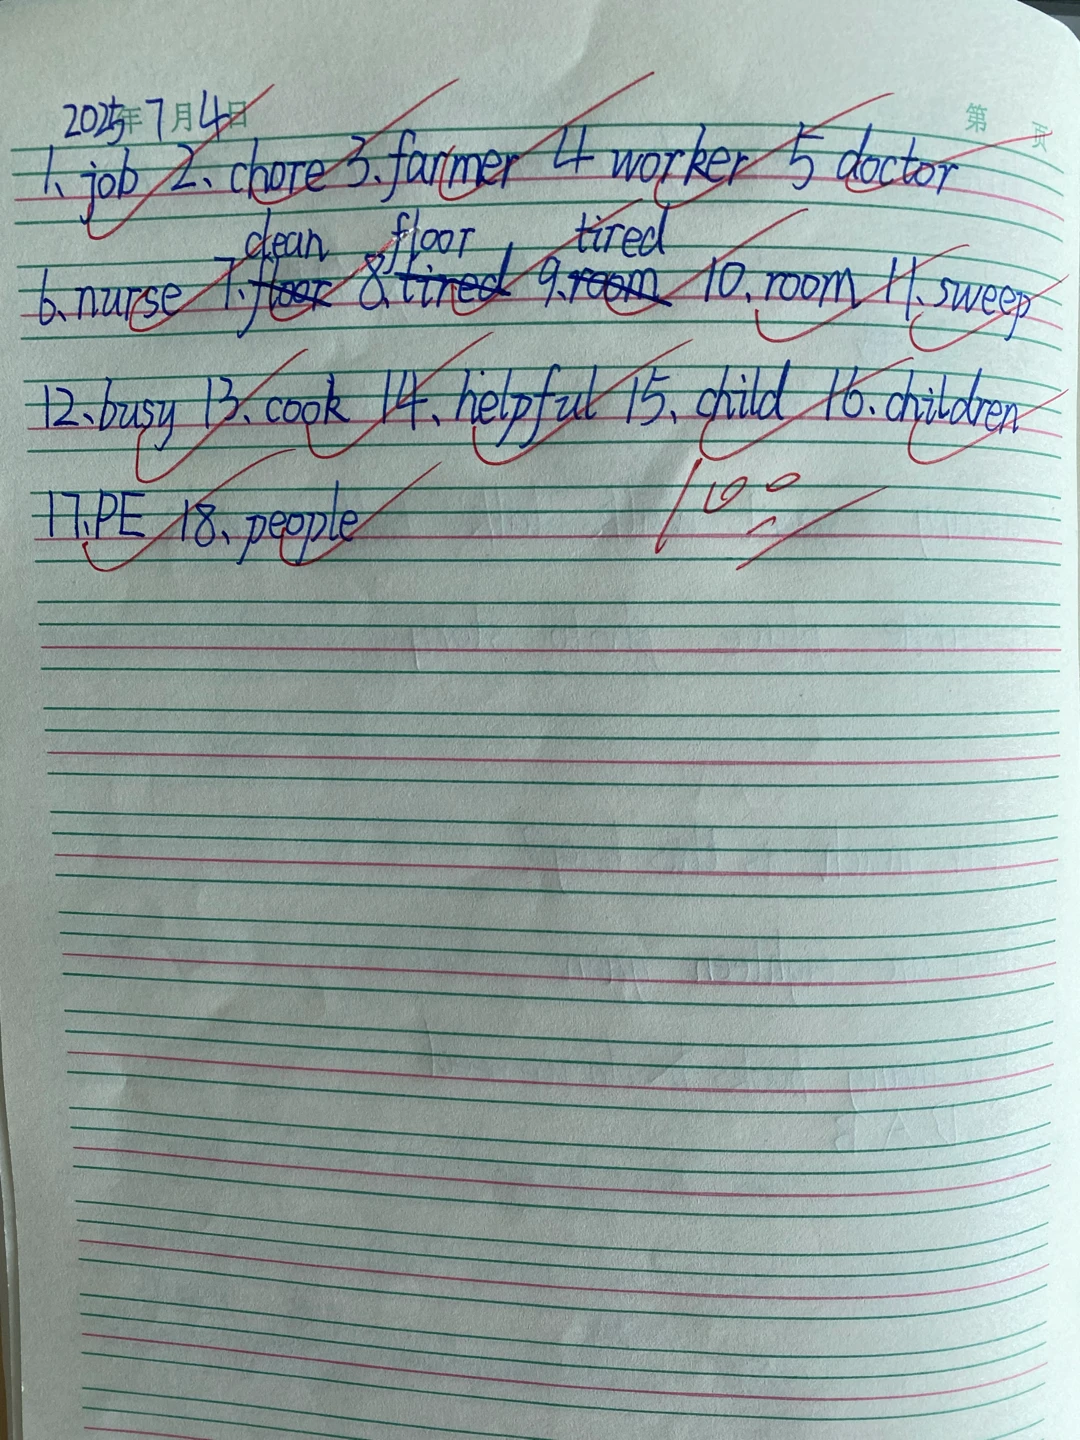 2025年7月4日 第 页
1、job 2、chore 3.farmer 4 worker 5 doctor
clean floor tired
6、nurse 7.floor 8.tired 9.room 10.room 11.sweep
12.busy 13.cook 14.helpful 15.child 16.children
17.PE 18、people
100